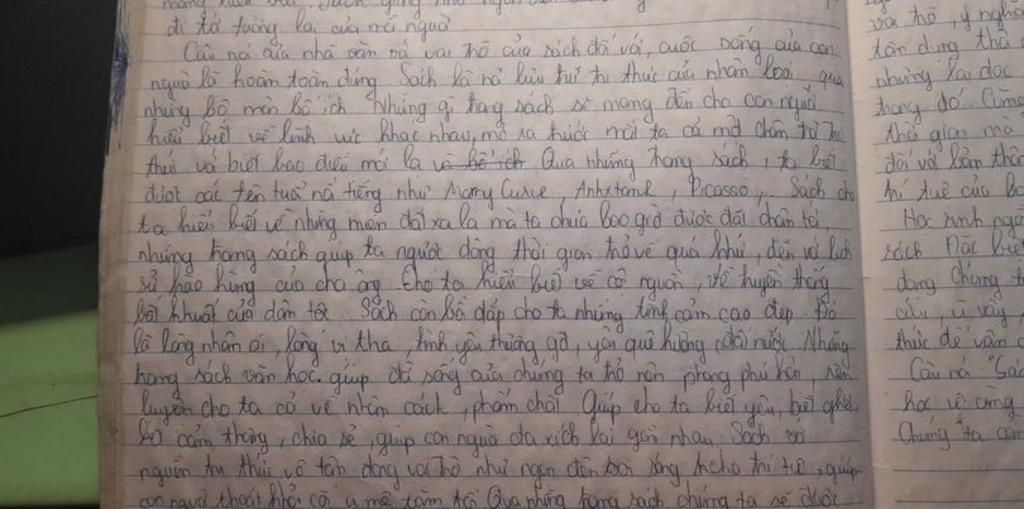 đi tớ tương lai của mỗ ngườ
Câu nó của nhà văn vả vai trò của sách đố vớ, cuộc sống của con
người là hoàn toàn đúng. Sách là nơ lưu trữ tri thức của nhân loại qua
những bộ môn bổ ích Những gì trang sách sẽ mang đến cho con người
hiểu biết về lĩnh vực khác nhau, mở ra trước mắt ta cả một chân trờ
thú và biết bao điều mớ lạ và bổ ích Qua những trang sách, ta biết
được các tên tuổi nổ tiếng như Marry Curxe, Anhxtanh, Picasso, Sách cho
ta hiểu biết về những miền đất xa lạ mà ta chưa bao giờ được đặt chân tớ,
những trang sách giúp ta ngược dòng thời gian trở về quá khứ, đến vớ lịch
sử hào hùng của cha ông. Cho ta hiểu biết về cộ nguồn, về truyền thống
bất khuất của dân tộc Sách còn bồ đắp cho ta những tình cảm cao đẹp. Đó
là lòng nhân ái, lòng vị tha, tình yêu thương, gđ, yêu quê hương đất nước. Những
trang sách văn học giúp đờ sống của chúng ta trở nên phong phú hơn, rèn
luyện cho ta cả về nhân cách, phẩm chất Giúp cho ta biết yêu, biết ghét,
biết cảm thông, chia sẻ, giúp con người ta xích lại gần nhau. Sách
nguồn tri thức vô tận đóng vai trò như ngọn đèn sáng cho trí tuệ, giúp
con người thoát khỏi cõ u mê tăm tố Qua những trang sách chúng ta sẽ được
vai trò, ý nghĩa
tận dụng
những lạ đọc
trang đó. Cũng
thờ gian mà
đố vớ bản thân
trí tuệ của
Học sinh ngồ
sách Đặc biệt
dạng Chúng
cứu, vì vậy,
thức để
Câu nó "Sác
học vô cùng
Chúng ta cần